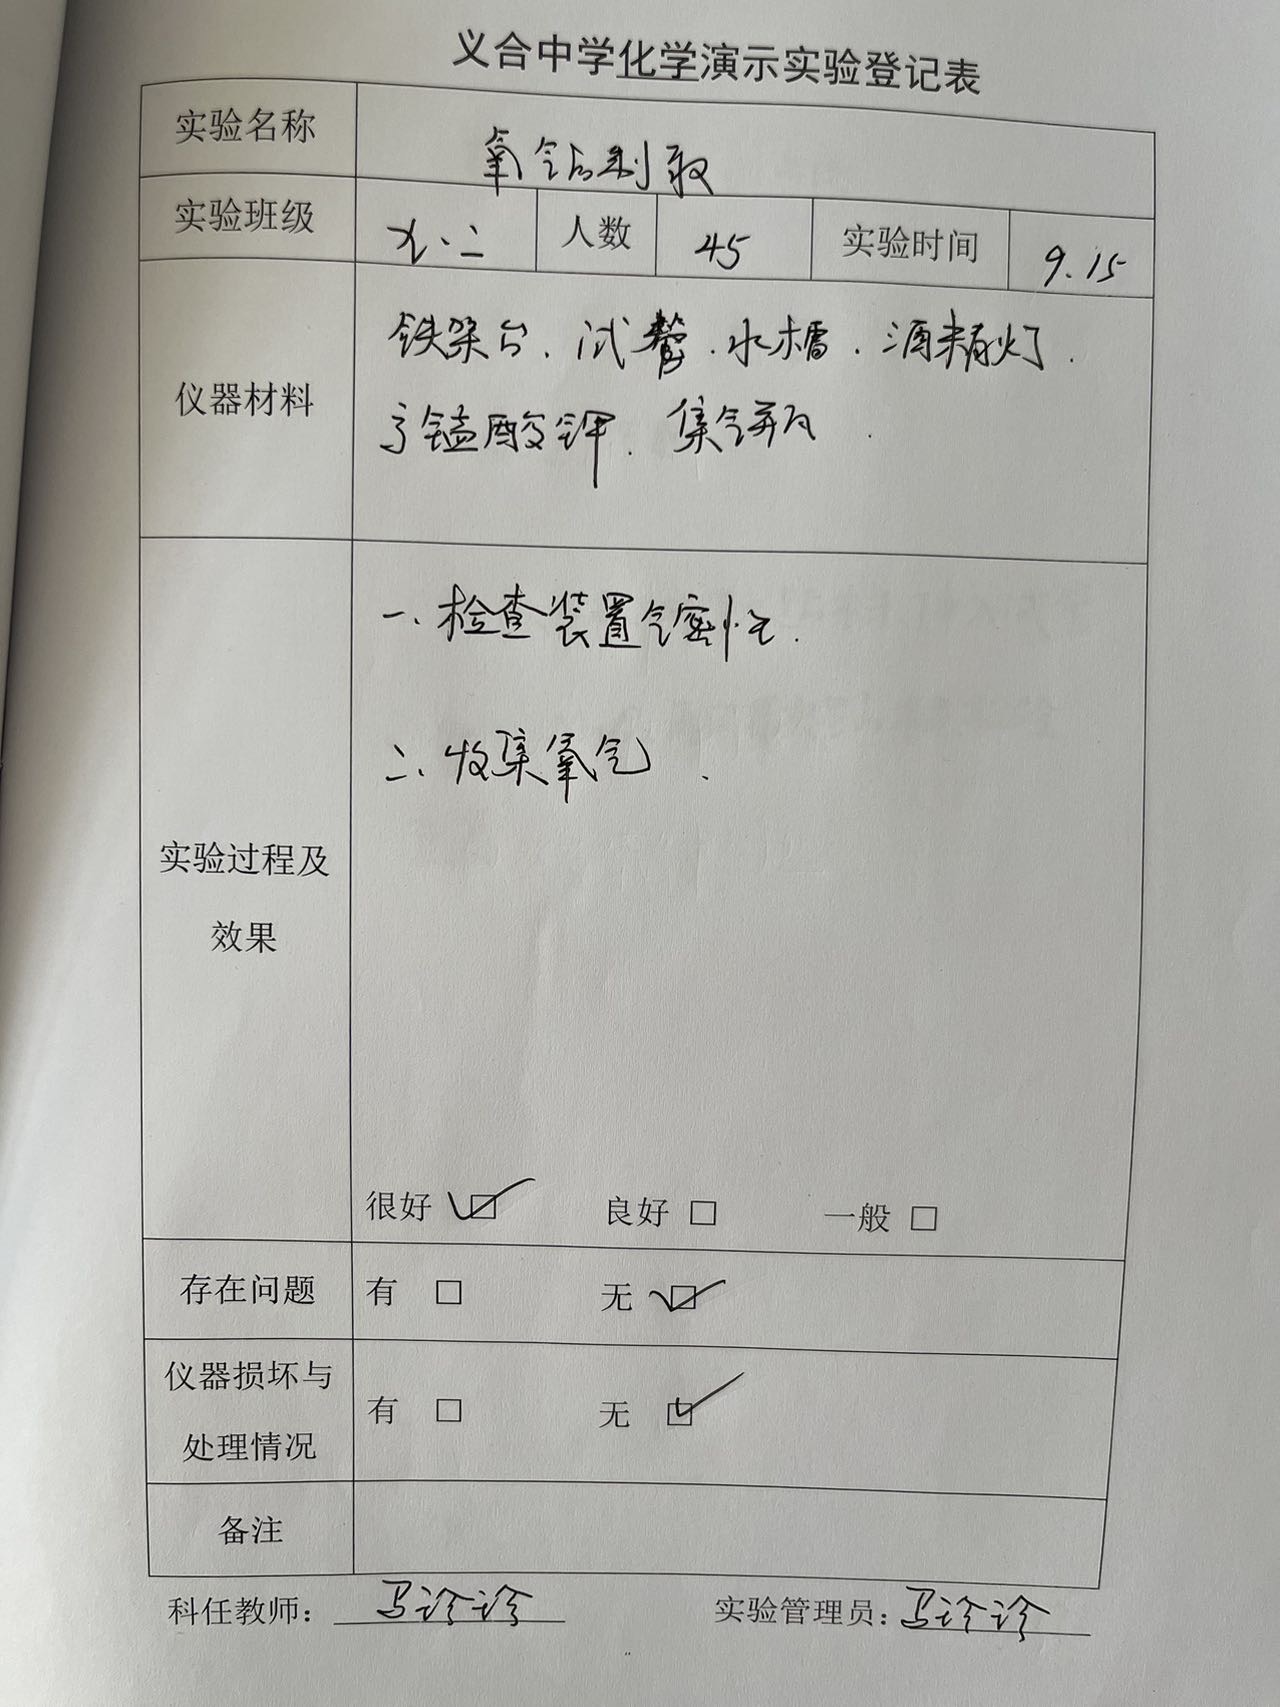 义合中学化学演示实验登记表
实验名称 氧气的制取
实验班级 九.二 人数 45 实验时间 9.15
仪器材料
铁架台、试管、水槽、酒精灯、
高锰酸钾、集气瓶
实验过程及
效果
一、检查装置气密性.
二、收集氧气.
很好 ☑ 良好 □ 一般 □
存在问题 有 □ 无 ☑
仪器损坏与
处理情况
有 □ 无 ☑
备注
科任教师：马诊诊 实验管理员：马诊诊